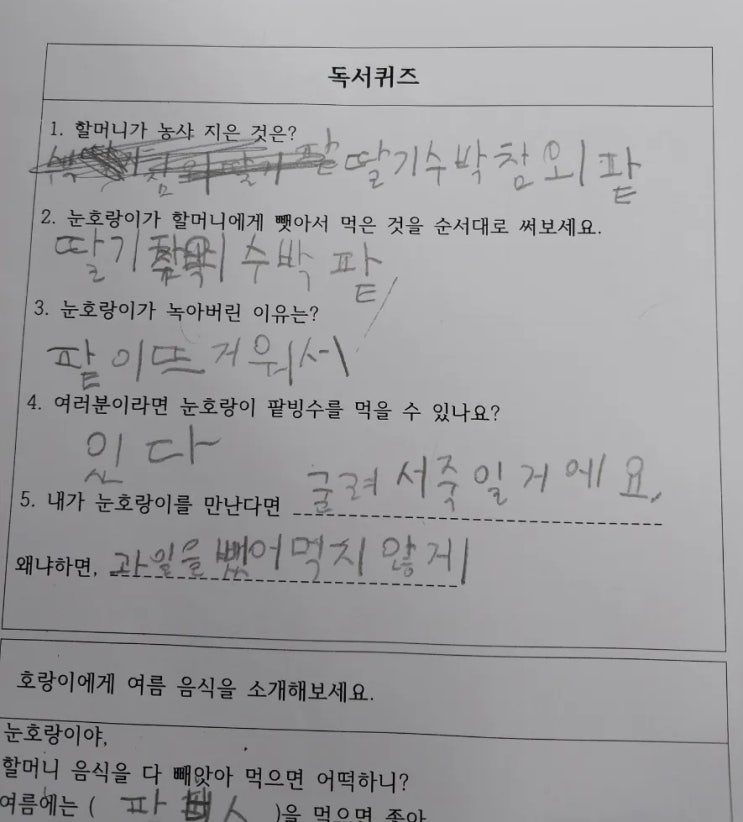 독서퀴즈
1. 할머니가 농사 지은 것은?
딸기수박참외팥
2. 눈호랑이가 할머니에게 뺏아서 먹은 것을 순서대로 써보세요.
딸기 수박 팥
3. 눈호랑이가 녹아버린 이유는?
팥이뜨거워서
4. 여러분이라면 눈호랑이 팥빙수를 먹을 수 있나요?
있다
굴려서죽일거에요.
5. 내가 눈호랑이를 만난다면
왜냐하면, 과일을뺐어먹지않게
호랑이에게 여름 음식을 소개해보세요.
눈호랑이야,
할머니 음식을 다 빼앗아 먹으면 어떡하니?
여름에는 ( 파 )을 먹으면 좋아